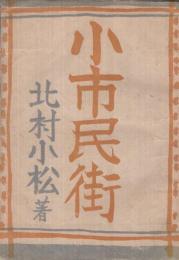 小市民街
北村小松著